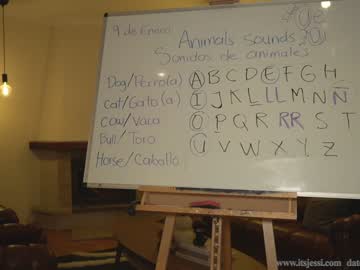 9 de Enero
Animals sounds
Sonidos de animales
Dog/Perro(a)
Cat/Gato(a)
Cow/Vaca
Bull/Toro
Horse/Caballo
A B C D E F G H
I J K L LL M N Ñ
O P Q R RR S T
U V W X Y Z
www.itsjessi.com